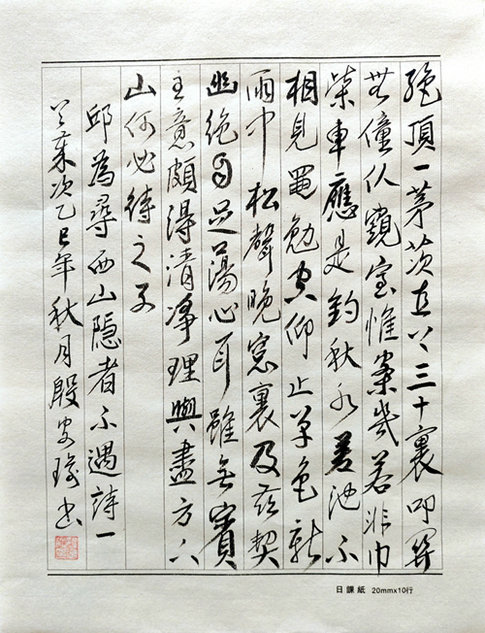 絕頂一茅茨直上三十裏叩關
無僮仆窺室惟案幾若非巾
柴車應是釣秋水差池不
相見黽勉空仰止草色新
雨中松聲晚窓裏及茲契
幽絕自足蕩心耳雖無賓
主意頗得清淨理興盡方下
山何必待之子
邱為尋西山隱者不遇詩一
首歲次乙巳年秋月殷安書
日課紙 20mmx10行